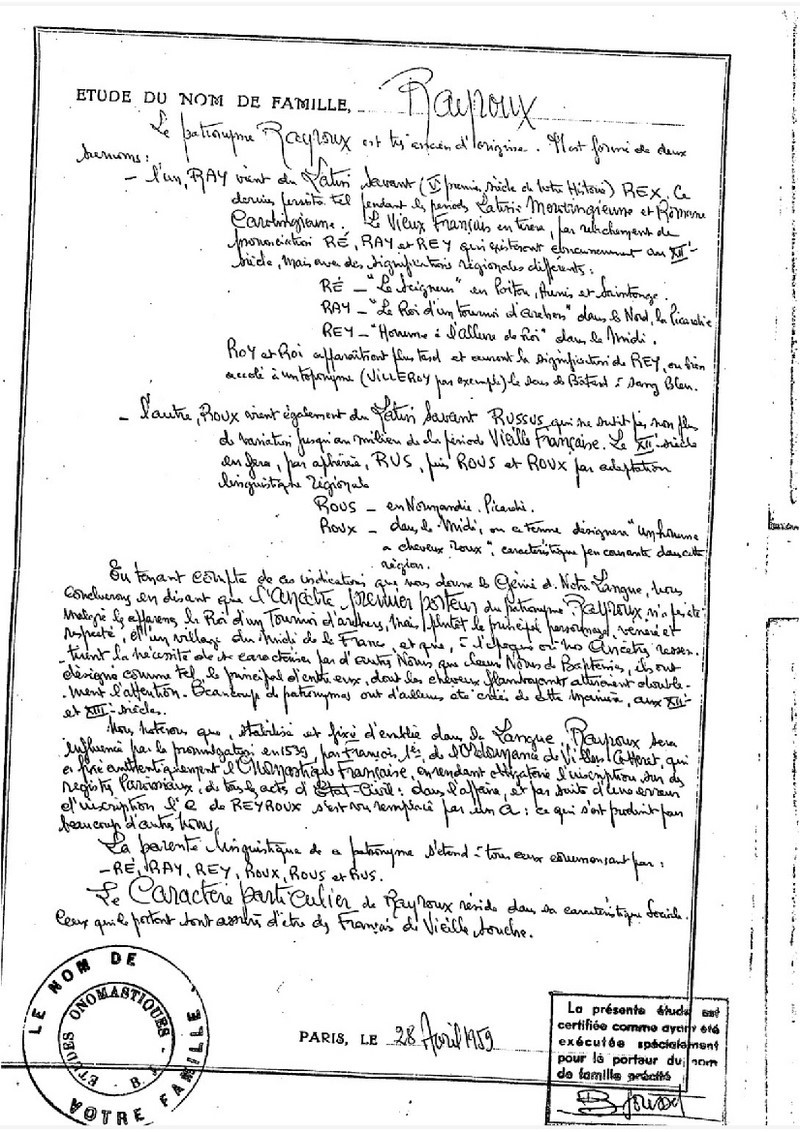 ETUDE DU NOM DE FAMILLE, Rayroux
Le patronyme Rayroux est très ancien d'origine. Il est formé de deux
surnoms :
– l'un, RAY vient du Latin Savant (V premiers siècles de notre Histoire) REX. Ce
dernier persista tel pendant les périodes Latine Mérovingienne et Romane
Carolingienne. Le Vieux Français en tirera, par
prononciation RÉ, RAY et REY qui existeront concurremment au XIIe
siècle, mais avec des significations régionales différentes :
RÉ – "Le Seigneur" en Poitou, Aunis et Saintonge.
RAY – "Le Roi d'un tournoi d'archers" dans le Nord, la Picardie
REY – "Homme à l'allure de Roi" dans le Midi.
ROY et ROI apparaitront plus tard et auront la signification de REY, ou bien
accolé à un toponyme (VILLEROY par exemple) le sens de Bâtard à Sang Bleu.
– l'autre, ROUX vient également du Latin Savant RUSSUS, qui ne subit pas non plus
de variation jusqu'au milieu de la période Vieille Française. Le XIIe siècle
en fera, par aphérèse, RUS, puis ROUS et ROUX par adaptation
linguistique régionale
ROUS – en Normandie. Picardie.
ROUX – dans le Midi, ou ce terme désignera "un homme
a cheveux roux", caractéristique peu courante dans cette
région.
En tenant compte de ces indications que nous donne le Génie de Notre Langue, nous
conclurons en disant que L'ancêtre premier porteur du patronyme Rayroux n'a pas été
malgré les apparences le Roi d'un Tournoi d'archers, mais plutôt le principal personnage vénéré et
respecté, d'un village du midi de la France, et que, à l'époque où nos Ancêtres ressen-
-tirent la nécessité de se caractériser par d'autres Noms que leurs Noms de Baptêmes, ils ont
désigné comme tel, le principal d'entre eux, dont les cheveux flamboyants attiraient double-
-ment l'attention. Beaucoup de patronymes ont d'ailleurs été créés de cette manière, aux XIIe
et XIIIe siècles.
Nous noterons que, stabilisé et fixé d'emblée dans la Langue Rayroux sera
influencé par la promulgation en 1539, par François 1er, de l'Ordonnance de Villers Cotteret, qui
a fixé authentiquement l'Onomastique Française, en rendant obligatoire l'inscription sur des
registres Paroissiaux de tous les actes d'Etat-Civil : dans l'affaire, et par suite d'une erreur
d'inscription l'E de REYROUX s'est vu remplacé par un A : ce qui s'est produit pour
beaucoup d'autres Noms.
La parenté linguistique de ce patronyme s'étend à tous ceux commençant par :
– RÉ, RAY, REY, ROUX, ROUS et RUS.
Le Caractère particulier de Rayroux réside dans sa caractéristique Sociale.
Ceux qui le portent sont assurés d'être des Français de Vieille souche.
LE NOM DE VOTRE FAMILLE
ETUDES ONOMASTIQUES
- B. J. -
PARIS, LE 28 Avril 1959
La présente étude est
certifiée comme ayant été
exécutée spécialement
pour le porteur du nom
de famille précité